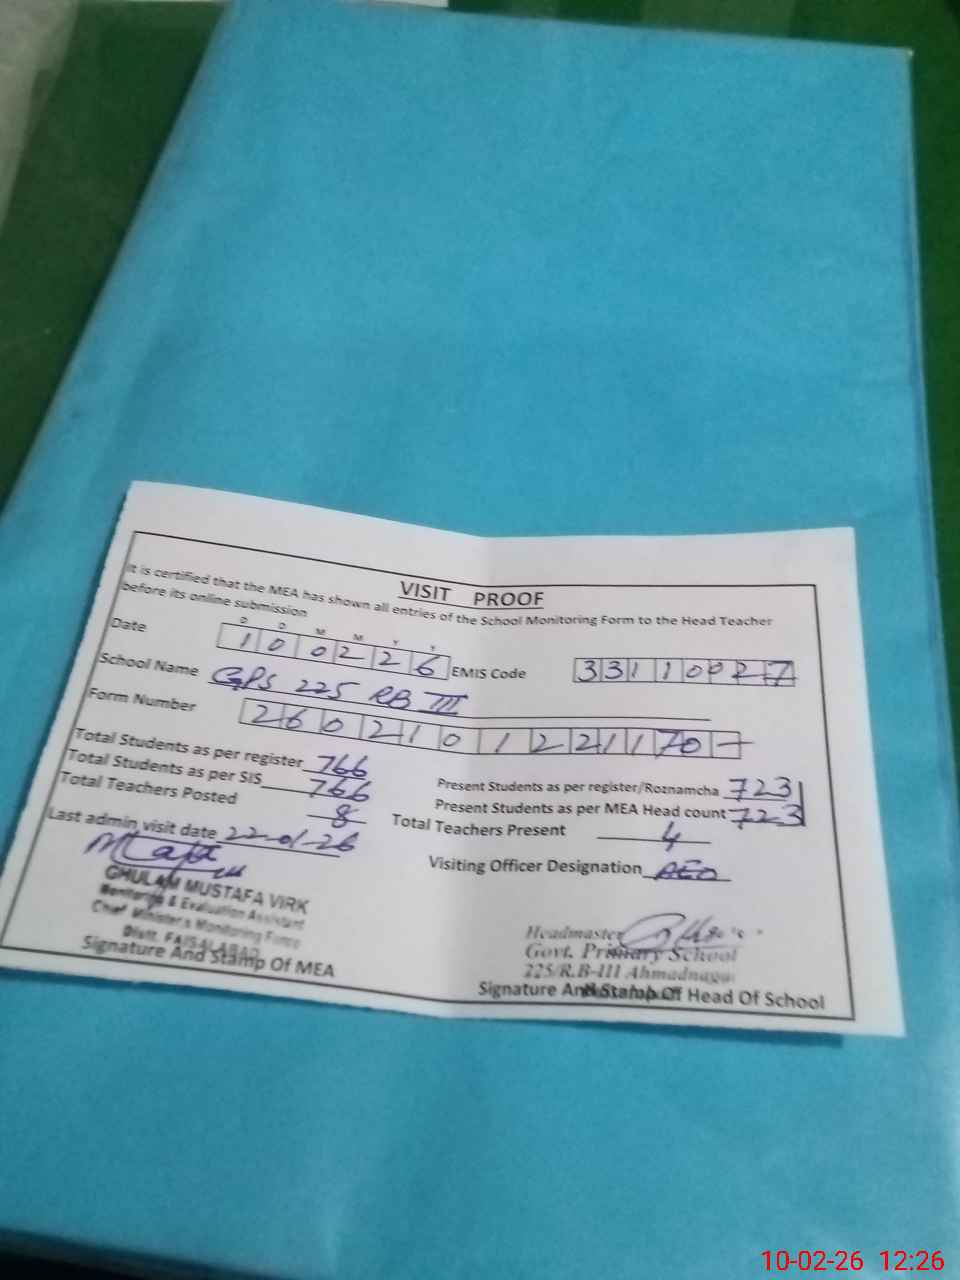 VISIT PROOF
It is certified that the MEA has shown all entries of the School Monitoring Form to the Head Teacher
before its online submission
D D M M Y Y
Date 1 0 0 2 2 6 EMIS Code 3 3 1 1 0 0 2 7
School Name GPS 225 RB III
Form Number 2 6 0 2 1 0 1 2 2 1 1 7 0 -
Total Students as per register 766 Present Students as per register/Roznamcha 723
Total Students as per SIS 766 Present Students as per MEA Head count 723
Total Teachers Posted 8 Total Teachers Present 4
Last admin visit date 22-01-26 Visiting Officer Designation AEO
GHULAM MUSTAFA VIRK
Monitoring & Evaluation Assistant
Chief Minister's Monitoring Force
Distt. FAISALABAD
Signature And Stamp Of MEA
Headmaster
Govt. Primary School
225/R.B-III Ahmadnagar
Signature And Stamp Of Head Of School
10-02-26 12:26